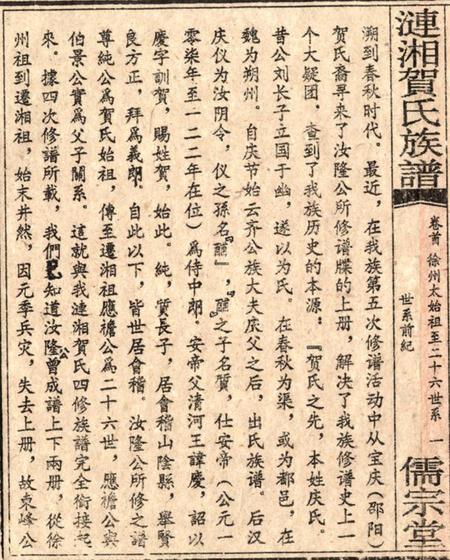 漣湘賀氏族譜
卷首 徐州太始祖至二十六世系 一
世系前紀
儒宗堂
溯到春秋时代。最近，在我族第五次修谱活动中从宝庆（邵阳）
贺氏裔寻来了汝隆公所修谱牒的上册，解决了我族修谱史上一
个大疑团，查到了我族历史的本源：『贺氏之先，本姓庆氏。
昔公刘长子立国于幽，遂以为氏。在春秋为渠，或为都邑，在
魏为朔州。自庆节始云齐公族大夫庆父之后，出氏族谱。后汉
庆仪为汝阴令，仪之孙名，之子名質，仕安帝（公元一
零柒年至一二二年在位）爲侍中郎。安帝父清河王諱慶，詔以
慶字訓賀，賜姓賀，始此。純，質長子，居會稽山陰縣，舉賢
良方正，拜爲義郎。自此以下，皆世居會稽 汝隆公所修之譜
尊純公爲賀氏始祖，傳至遷湘祖應檐公爲二十六世，應檐公與
伯景公實爲父子關系。這就與我漣湘賀氏四修族譜完全銜接起
來。據四次修譜所載，我們已知道汝隆公曾成譜上下兩册，從徐
州祖到遷湘祖，始末井然，因元季兵灾，失去上册，故東峰公